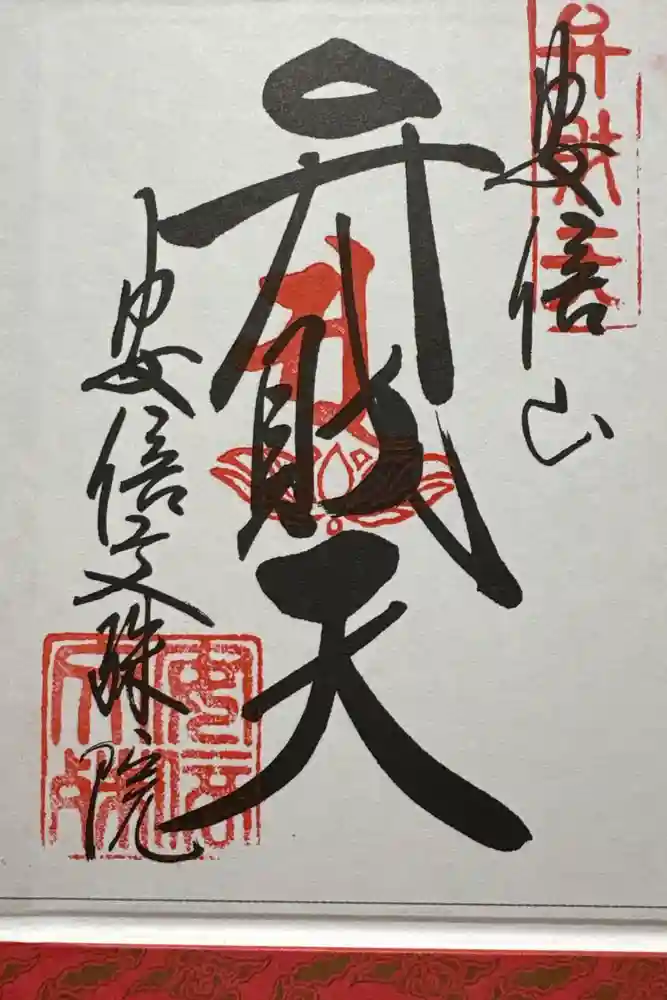 弁財天
安倍山
弁財天
安倍文殊院